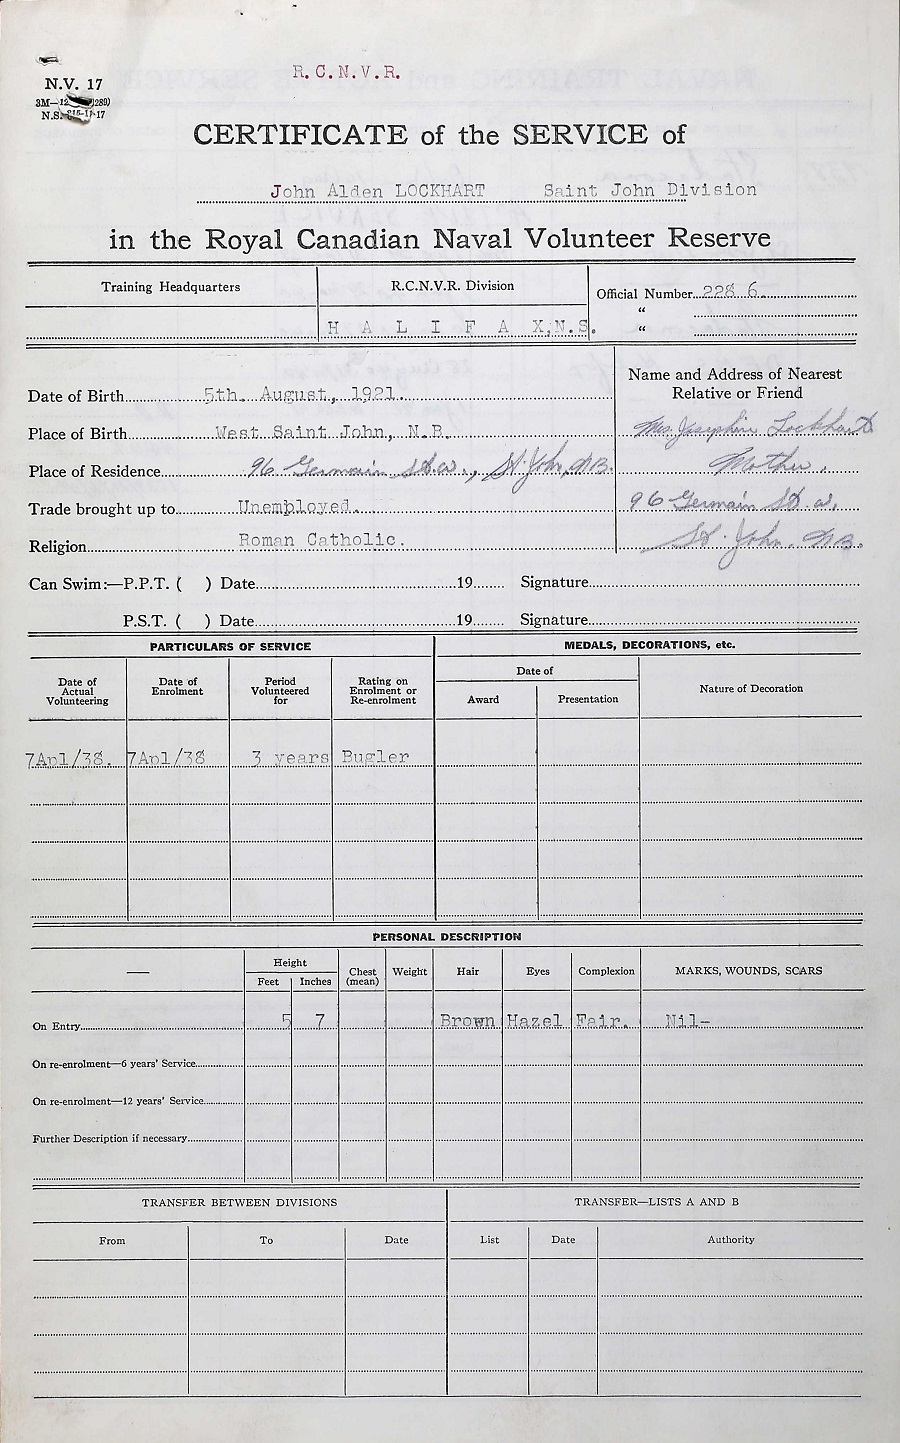 R.C.N.V.R.
N.V. 17
N.S.
CERTIFICATE of the SERVICE of
John Alden LOCKHART Saint John Division
in the Royal Canadian Naval Volunteer Reserve
Training Headquarters
R.C.N.V.R. Division
HALIFAX,N.S.
Official Number 228 6.
"
"
Date of Birth 5th. August, 1921.
Place of Birth West Saint John, N.B.
Place of Residence 96 Germain St. w., St. John, N.B.
Trade brought up to Unemployed.
Religion Roman Catholic.
Name and Address of Nearest
Relative or Friend
Mrs. Josephine Lockhart
Mother,
96 Germain St. w.
St. John. N.B.
Can Swim:—P.P.T. ( ) Date 19 Signature
P.S.T. ( ) Date 19 Signature
PARTICULARS OF SERVICE
MEDALS, DECORATIONS, etc.
Date of
Actual
Volunteering
Date of
Enrolment
Period
Volunteered
for
Rating on
Enrolment or
Re-enrolment
Date of
Award
Presentation
Nature of Decoration
7Apl/38. 7Apl/38 3 years Bugler
PERSONAL DESCRIPTION
—
Height
Feet Inches
Chest
(mean)
Weight
Hair
Eyes
Complexion
MARKS, WOUNDS, SCARS
On Entry 5 7 Brown Hazel Fair. Nil-
On re-enrolment—6 years' Service
On re-enrolment—12 years' Service
Further Description if necessary
TRANSFER BETWEEN DIVISIONS
TRANSFER—LISTS A AND B
From To Date List Date Authority